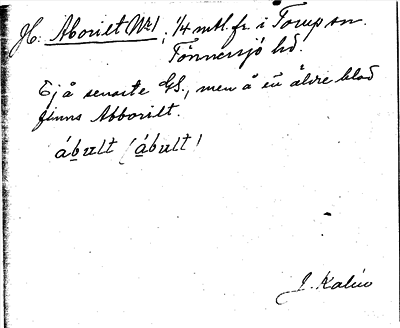 Jfr: Aborilt №1, 1/4 mtl. fr. i Torup sn.
Tönnersjö hd.
Ej å senaste GS., men å en äldre blad
finns Abborilt.
ábult (ábult)
J. Kalén